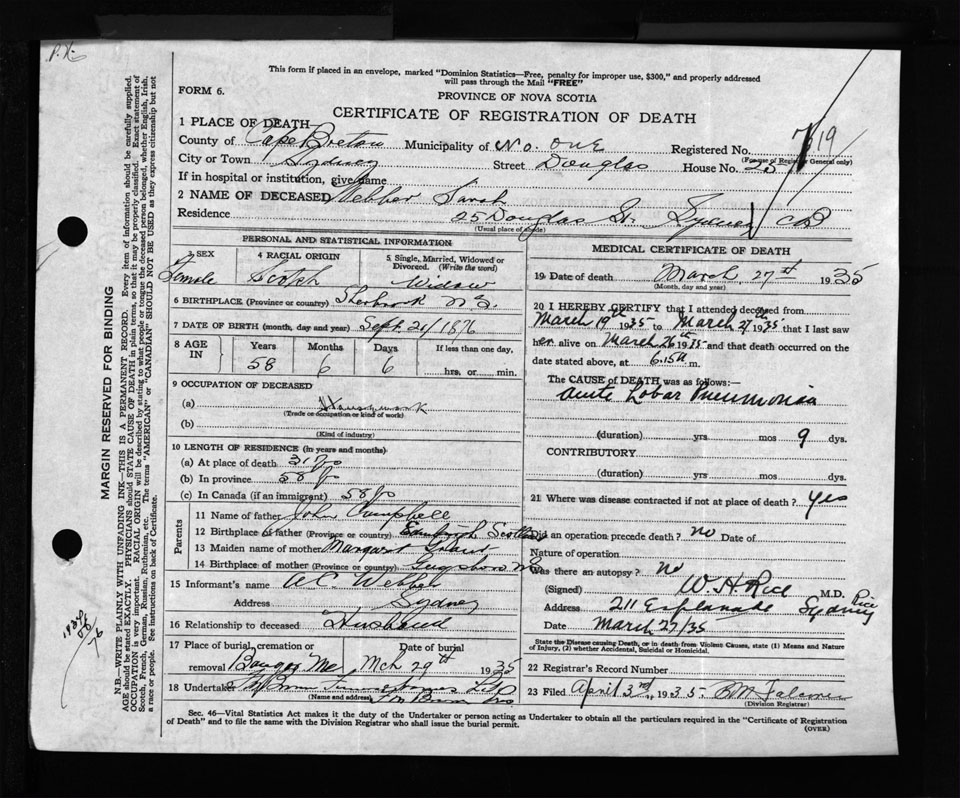 P.H.
This form if placed in an envelope, marked "Dominion Statistics—Free, penalty for improper use, $300," and properly addressed
will pass through the Mail "FREE"
FORM 6.
PROVINCE OF NOVA SCOTIA
CERTIFICATE OF REGISTRATION OF DEATH
1 PLACE OF DEATH
County of Cape Breton Municipality of No. One Registered No. 719
(For use of Registrar General only)
City or Town Sydney Street Douglas House No. 25
If in hospital or institution, give name
2 NAME OF DECEASED Webber Sarah
Residence 25 Douglas St. Sydney CB
(Usual place of abode)
PERSONAL AND STATISTICAL INFORMATION
3 SEX Female
4 RACIAL ORIGIN Scotch
5 Single, Married, Widowed or Divorced. (Write the word) Widow
6 BIRTHPLACE (Province or country) Sherbrook N.S.
7 DATE OF BIRTH (month, day and year) Sept. 21/1876
8 AGE IN Years 58 Months 6 Days 6 If less than one day, hrs. or min.
9 OCCUPATION OF DECEASED
(a) Housework
(Trade or occupation or kind of work)
(b)
(Kind of industry)
10 LENGTH OF RESIDENCE (In years and months)
(a) At place of death 31 yrs
(b) In province 58 yrs
(c) In Canada (if an immigrant) 58 yrs
Parents
11 Name of father John Campbell
12 Birthplace of father (Province or country) Scotland
13 Maiden name of mother Margaret Grant
14 Birthplace of mother (Province or country) Guysboro N.S.
15 Informant's name W.C. Webber
Address Sydney
16 Relationship to deceased Husband
17 Place of burial, cremation or removal Bangor Me Date of burial Mch 29th 1935
18 Undertaker
(Name and address)
MEDICAL CERTIFICATE OF DEATH
19 Date of death March 27st 1935
(Month, day and year)
20 I HEREBY CERTIFY that I attended deceased from
March 19th 1935 to March 27th 1935 that I last saw
her alive on March 26 1935 and that death occurred on the
date stated above, at 6.15 a m.
The CAUSE of DEATH was as follows:—
Acute Lobar Pneumonia
(duration) yrs mos 9 dys.
CONTRIBUTORY
(duration) yrs mos dys.
21 Where was disease contracted if not at place of death? yes
Did an operation precede death? no Date of
Nature of operation
Was there an autopsy? No
(Signed) W.H. Rice M.D.
Rice
Address 211 Esplanade Sydney
Date March 27/35
State the Disease causing Death, or in death from Violent Causes, state (1) Means and Nature
of Injury, (2) whether Accidental, Suicidal or Homicidal.
22 Registrar's Record Number
23 Filed April 3rd, 1935
(Division Registrar)
Sec. 46—Vital Statistics Act makes it the duty of the Undertaker or person acting as Undertaker to obtain all the particulars required in the "Certificate of Registration
of Death" and to file the same with the Division Registrar who shall issue the burial permit.
(OVER)
MARGIN RESERVED FOR BINDING
N.B.—WRITE PLAINLY WITH UNFADING INK—THIS IS A PERMANENT RECORD. Every item of information should be carefully supplied.
AGE should be stated EXACTLY. PHYSICIANS should STATE CAUSE OF DEATH in plain terms, so that it may be properly classified. Exact statement of
OCCUPATION is very important. RACIAL ORIGIN will be described by stating to what people or tongue the deceased person belonged, whether English, Irish,
Scotch, French, German, Russian, Ruthenian, etc. The terms "AMERICAN" or "CANADIAN" SHOULD NOT BE USED as they express citizenship but not
a race or people. See instructions on back of Certificate.